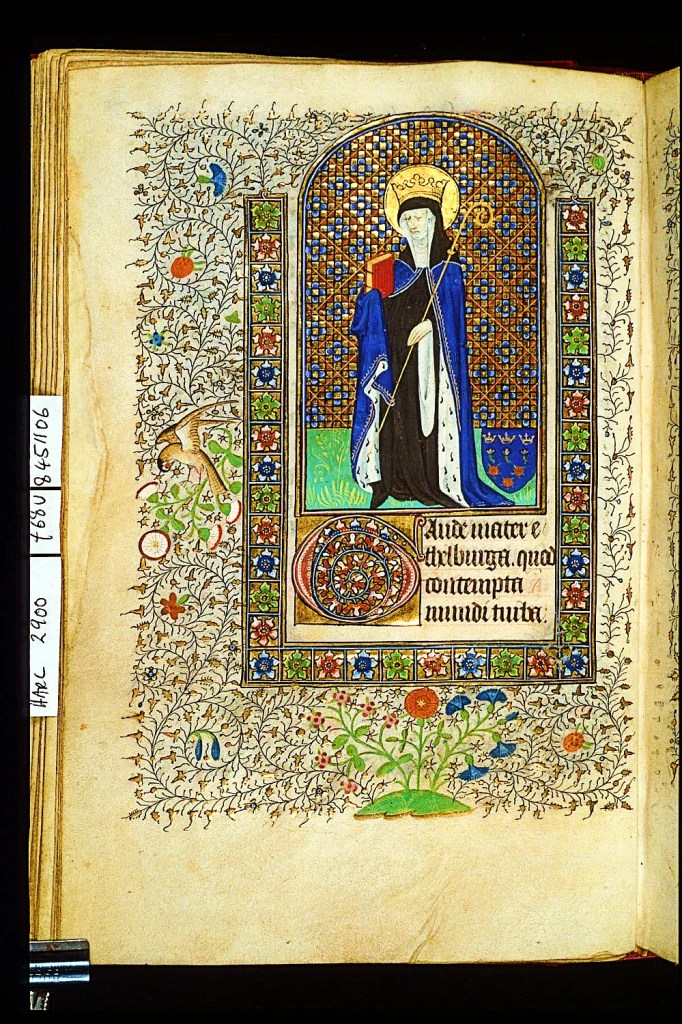 GAude mater e
thelburga. quod
contempta
mundi turba.
HARL 2900 f68v 8451106